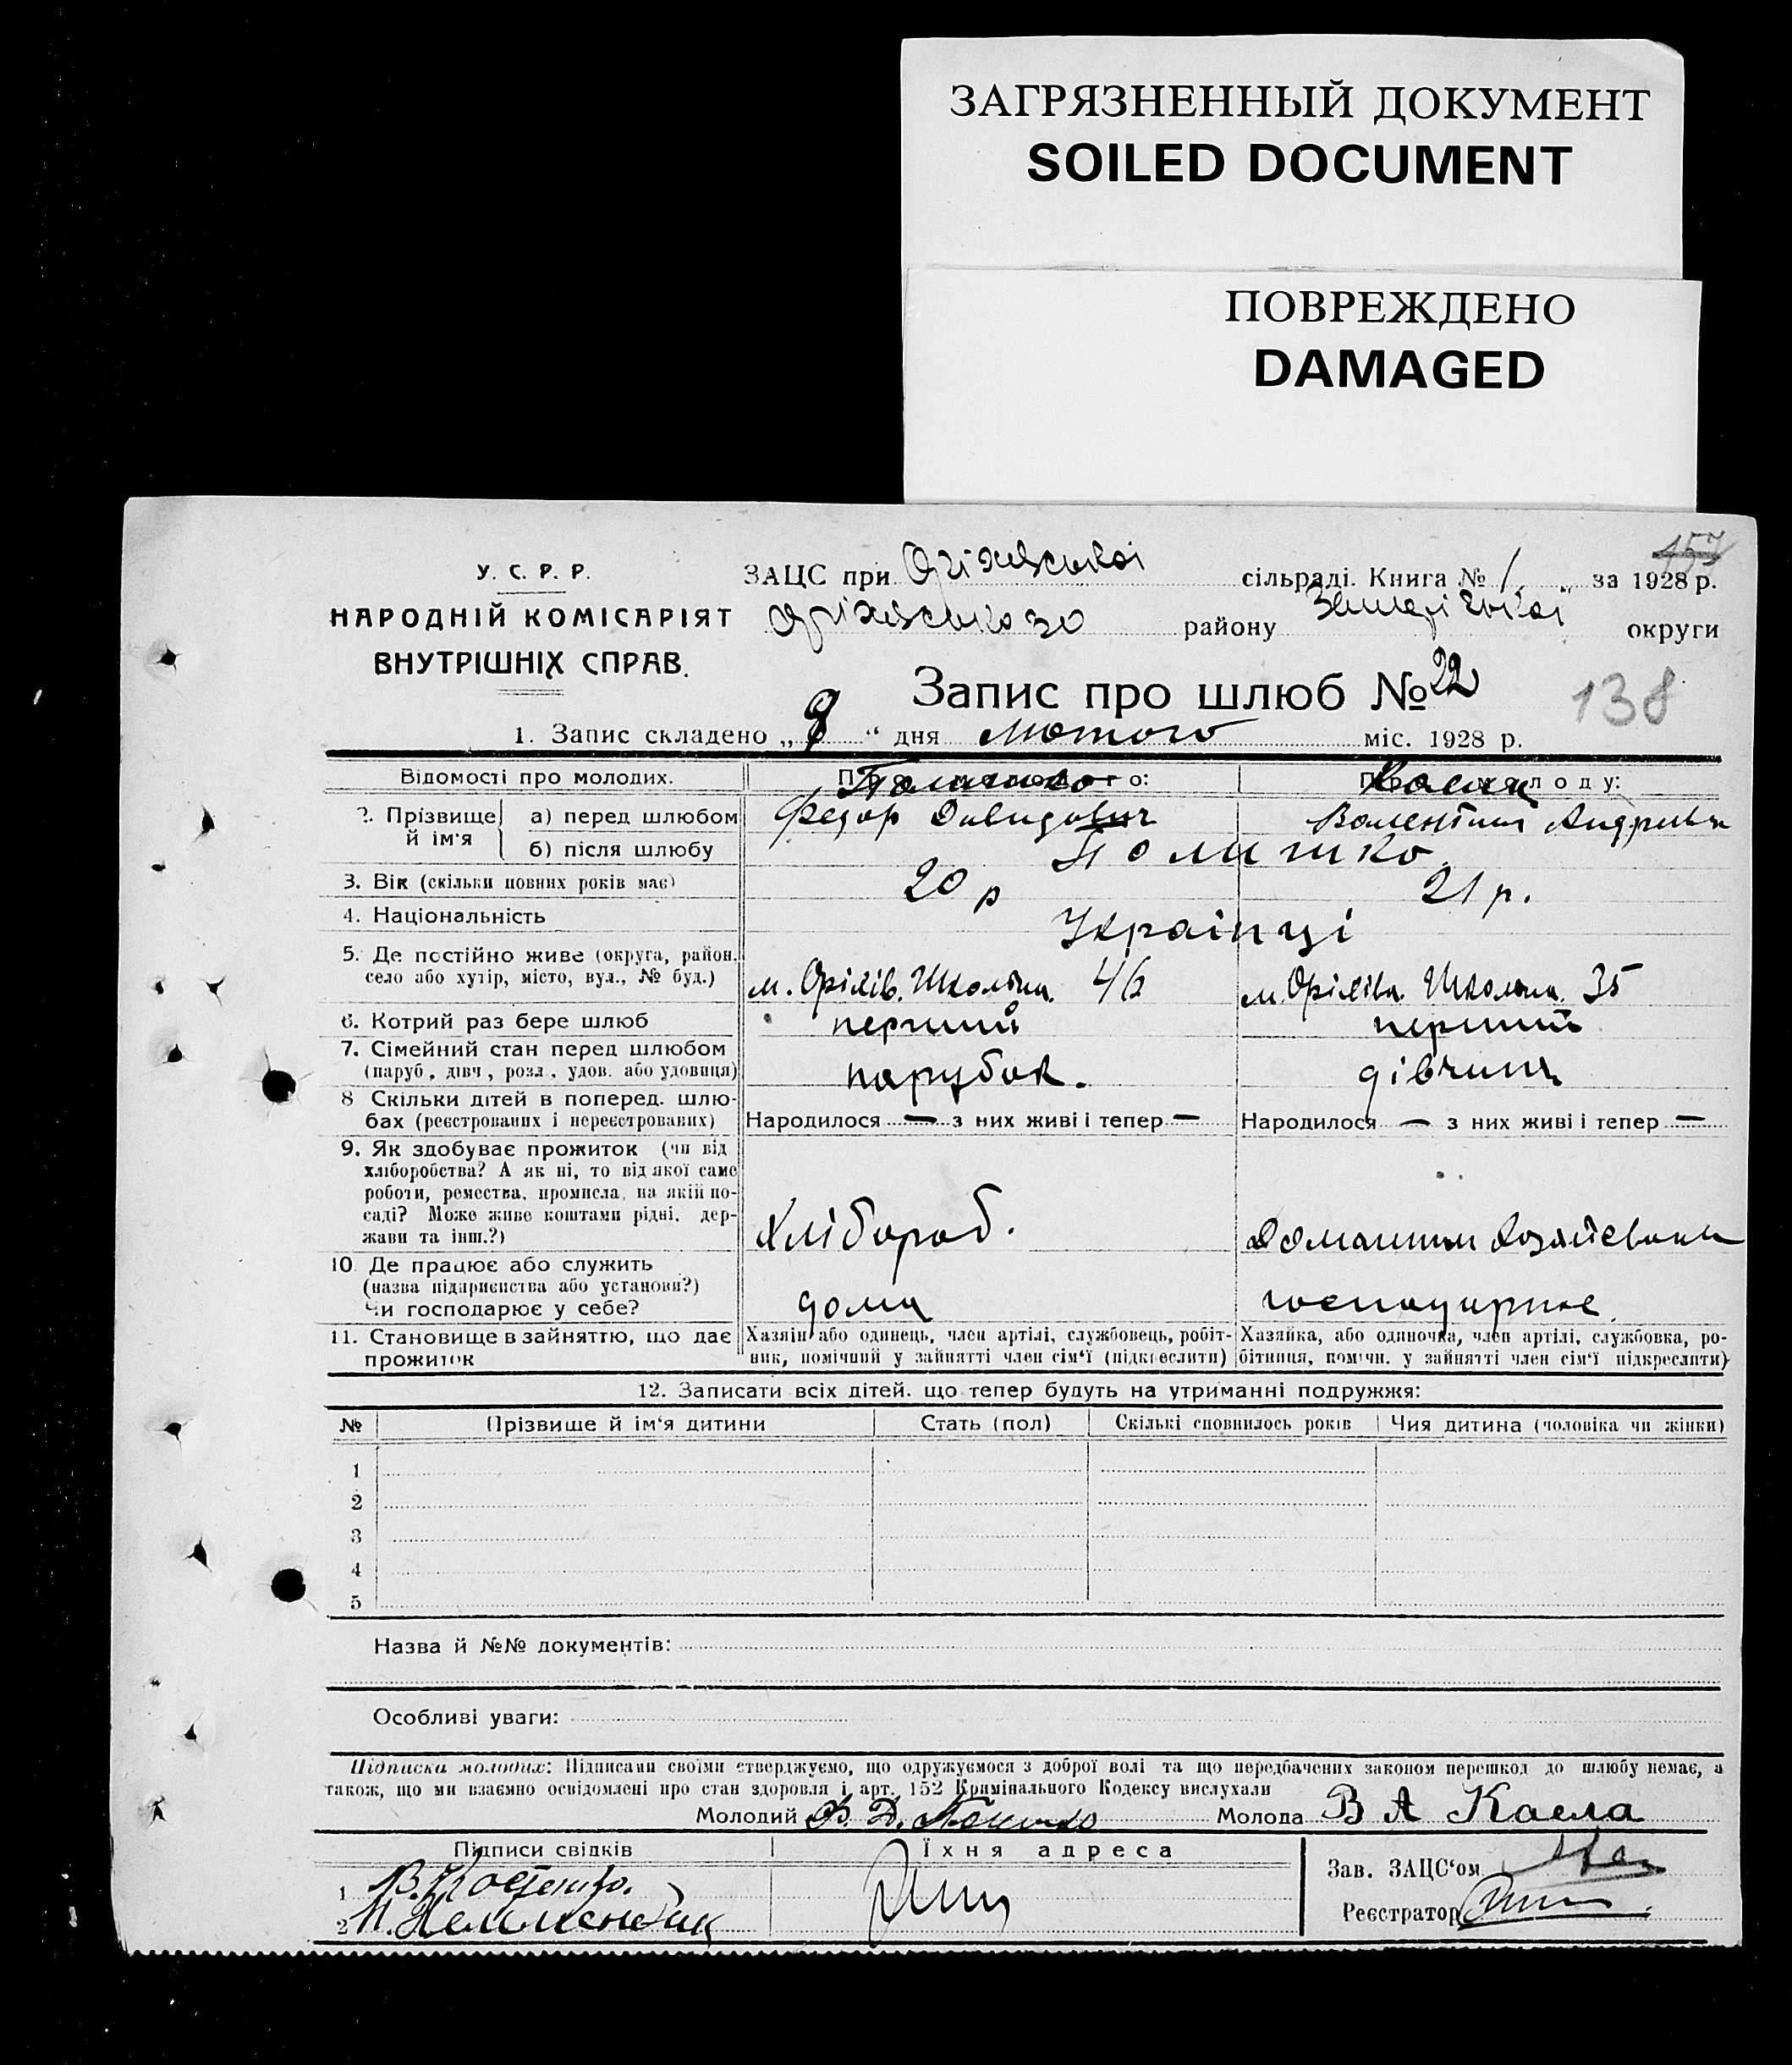 ЗАГРЯЗНЕННЫЙ ДОКУМЕНТ
SOILED DOCUMENT
ПОВРЕЖДЕНО
DAMAGED
457
У. С. Р. Р.
НАРОДНІЙ КОМІСАРІЯТ
ВНУТРІШНІХ СПРАВ.
ЗАЦС при Оріхівської сільраді. Книга № 1 за 1928 р.
Оріхівського району округи
Запис про шлюб № 22
138
1. Запис складено „ 8 “ дня Лютого міс. 1928 р.
Відомості про молодих.
2. Прізвище й ім'я
а) перед шлюбом Федор Давидович Валентина
б) після шлюбу
3. Вік (скільки повних років має) 20 р 21 р.
4. Національність Українці
5. Де постійно живе (округа, район, село або хутір, місто, вул., № буд.) м. Оріхів. 46 м. Оріхів 35
6. Котрий раз бере шлюб перший перший
7. Сімейний стан перед шлюбом (паруб., дівч., розл., удов. або удовиця) парубок. дівчина
8 Скільки дітей в поперед. шлюбах (реєстрованих і нереєстрованих) Народилося — з них живі і тепер — Народилося — з них живі і тепер —
9. Як здобуває прожиток (чи від хліборобства? А як ні, то від якої саме роботи, ремества, промисла, на якій посаді? Може живе коштами рідні, держави та інш.?) Хлібороб.
10 Де працює або служить (назва підприємства або установи?) Чи господарює у себе? дома
11. Становище в зайняттю, що дає прожиток
Хазяїн або одинець, член артілі, службовець, робітник, помічний у зайнятті член сім'ї (підкреслити)
Хазяйка, або одиночка, член артілі, службовка, робітниця, помічн. у зайнятті член сім'ї підкреслити)
12. Записати всіх дітей, що тепер будуть на утриманні подружжя:
№ Прізвище й ім'я дитини Стать (пол) Скількі сповнилось років Чия дитина (чоловіка чи жінки)
1
2
3
4
5
Назва й №№ документів:
Особливі уваги:
Підписка молодих: Підписами своїми стверджуємо, що одружуємося з доброї волі та що передбачених законом перешкод до шлюбу немає, а
також, що ми взаємно освідомлені про стан здоровля і арт. 152 Кримінального Кодексу вислухали
Молодий Ф. Д. Молода В А Каела
Підписи свідків Їхня адреса
Зав. ЗАЦС'ом
1 В. Костенко.
2
Реєстратор